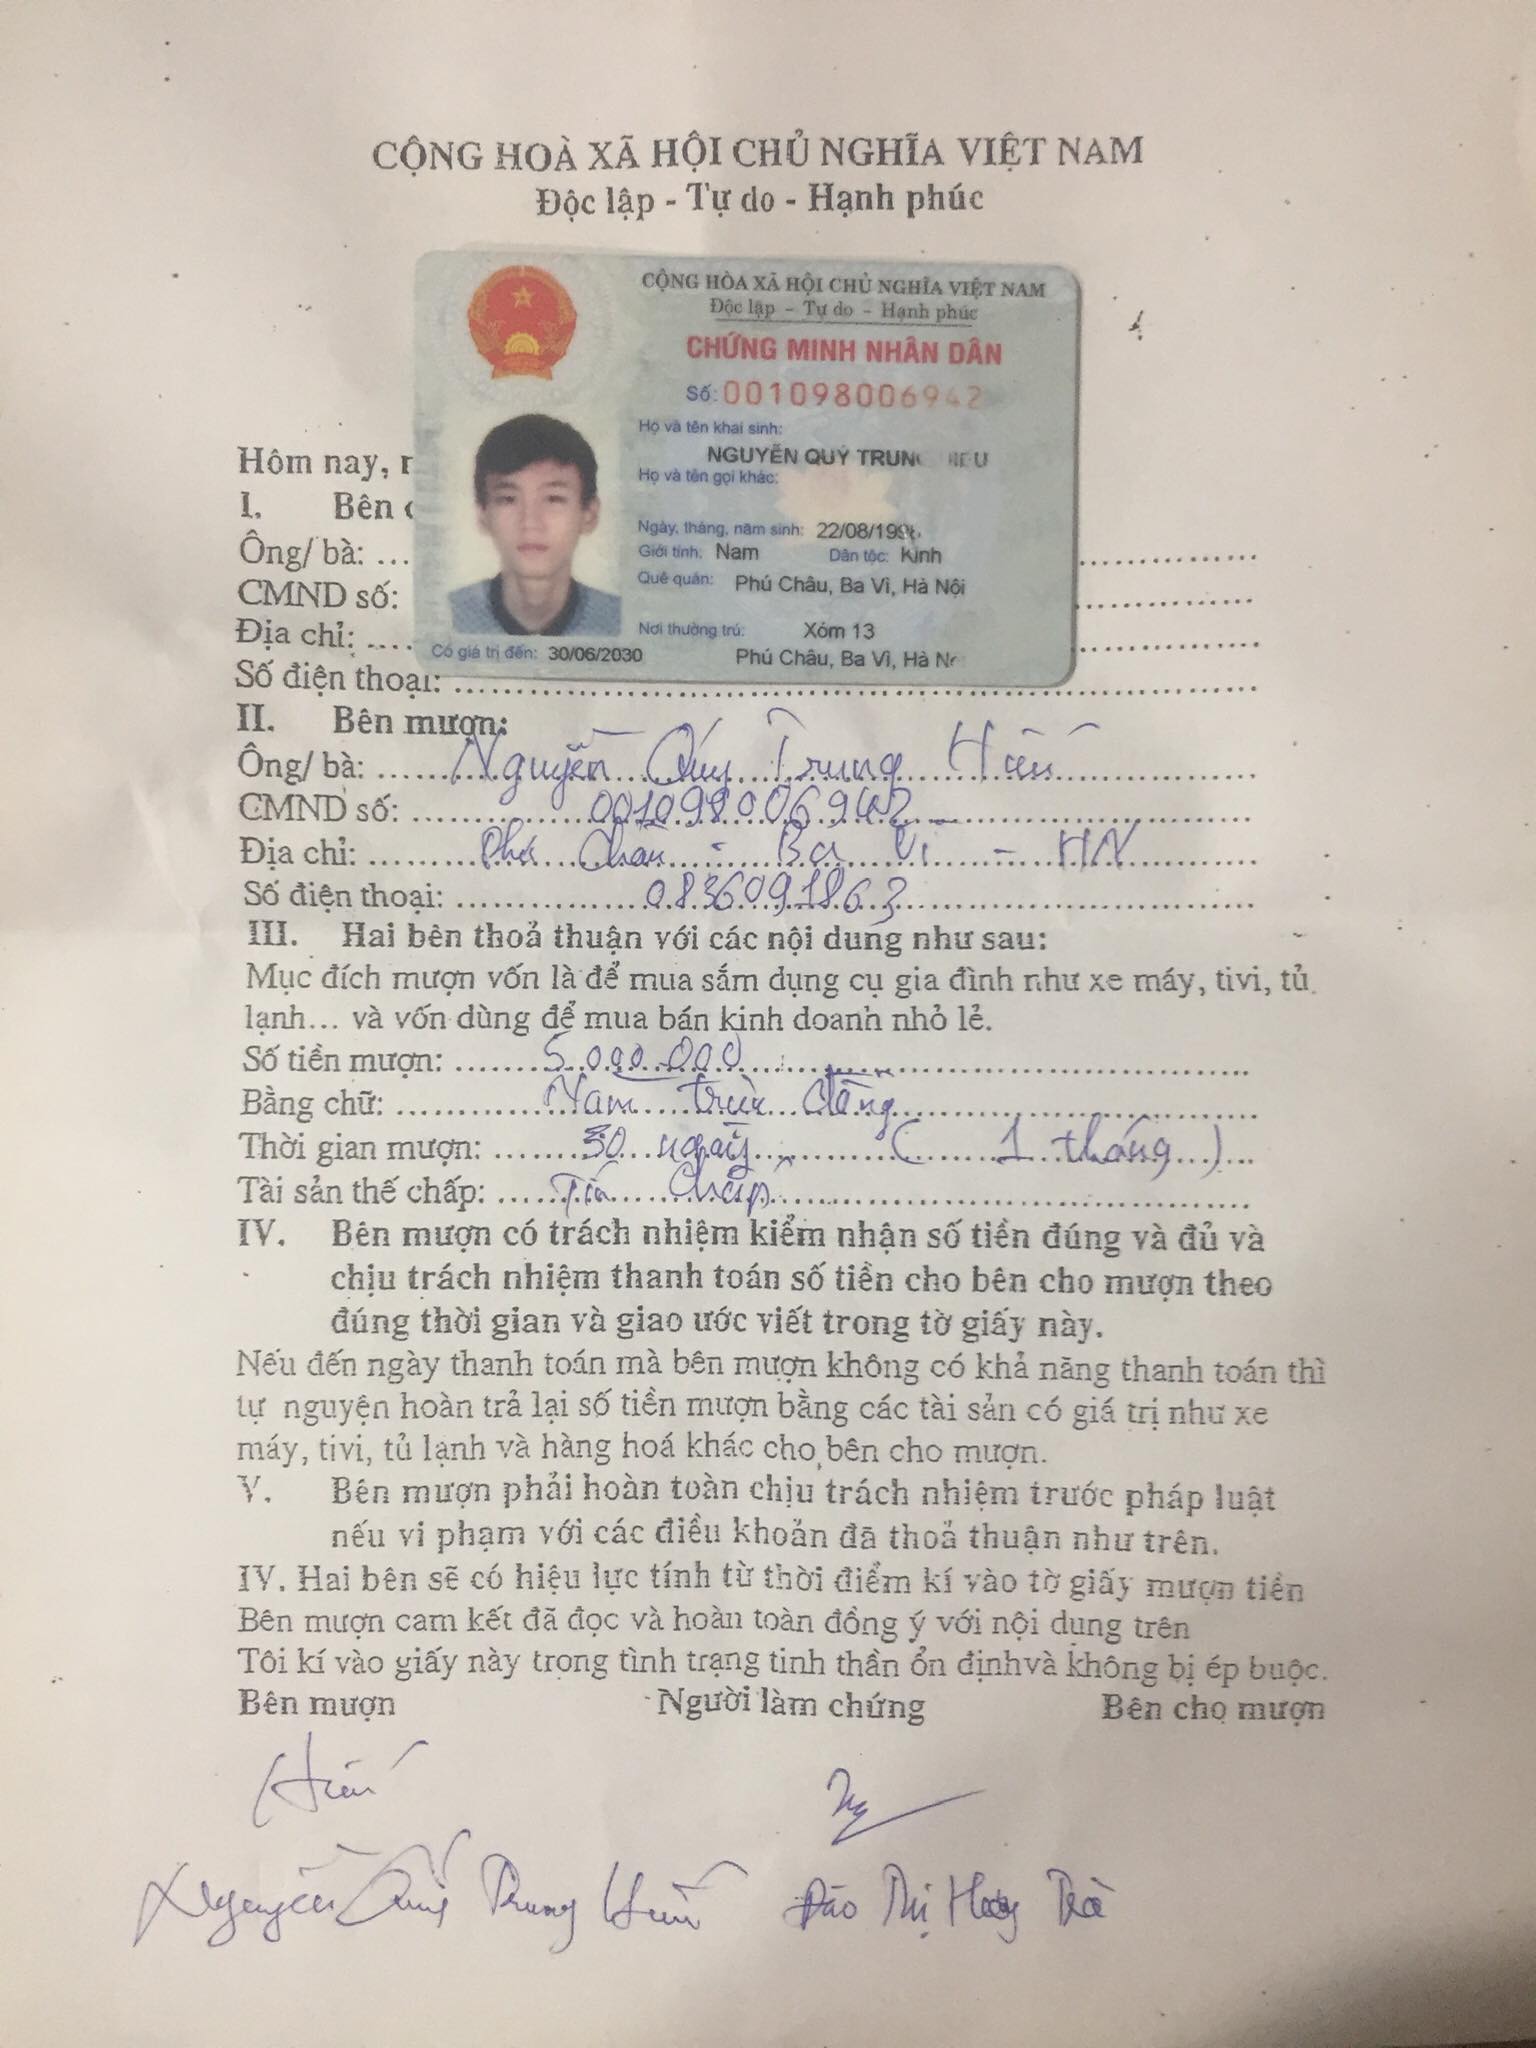 CỘNG HOÀ XÃ HỘI CHỦ NGHĨA VIỆT NAM
Độc lập - Tự do - Hạnh phúc
CỘNG HÒA XÃ HỘI CHỦ NGHĨA VIỆT NAM
Độc lập - Tự do - Hạnh phúc
CHỨNG MINH NHÂN DÂN
Số: 001098006942
Họ và tên khai sinh:
NGUYỄN QUÝ TRUNG
Họ và tên gọi khác:
Ngày, tháng, năm sinh: 22/08/199
Giới tính: Nam Dân tộc: Kinh
Quê quán: Phú Châu, Ba Vì, Hà Nội
Nơi thường trú: Xóm 13
Phú Châu, Ba Vì, Hà
Có giá trị đến: 30/06/2030
Hôm nay,
I. Bên
Ông/ bà: ...
CMND số:
Địa chỉ: ....
Số điện thoại: ....
II. Bên mượn:
Ông/ bà: Nguyễn Quý Trung Hiếu
CMND số: 001098006942
Địa chỉ: Phú Châu - Ba Vì - HN
Số điện thoại: 0836091863
III. Hai bên thoả thuận với các nội dung như sau:
Mục đích mượn vốn là để mua sắm dụng cụ gia đình như xe máy, tivi, tủ
lạnh... và vốn dùng để mua bán kinh doanh nhỏ lẻ.
Số tiền mượn: 5.000.000
Bằng chữ: Năm triệu đồng
Thời gian mượn: 30 ngày (1 tháng)
Tài sản thế chấp: Tín chấp
IV. Bên mượn có trách nhiệm kiểm nhận số tiền đúng và đủ và
chịu trách nhiệm thanh toán số tiền cho bên cho mượn theo
đúng thời gian và giao ước viết trong tờ giấy này.
Nếu đến ngày thanh toán mà bên mượn không có khả năng thanh toán thì
tự nguyện hoàn trả lại số tiền mượn bằng các tài sản có giá trị như xe
máy, tivi, tủ lạnh và hàng hoá khác cho bên cho mượn.
V. Bên mượn phải hoàn toàn chịu trách nhiệm trước pháp luật
nếu vi phạm với các điều khoản đã thoả thuận như trên.
IV. Hai bên sẽ có hiệu lực tính từ thời điểm kí vào tờ giấy mượn tiền
Bên mượn cam kết đã đọc và hoàn toàn đồng ý với nội dung trên
Tôi kí vào giấy này trong tình trạng tinh thần ổn địnhvà không bị ép buộc.
Bên mượn Người làm chứng Bên cho mượn
Hiếu
Nguyễn Quý Trung Hiếu Đào Thị Trà